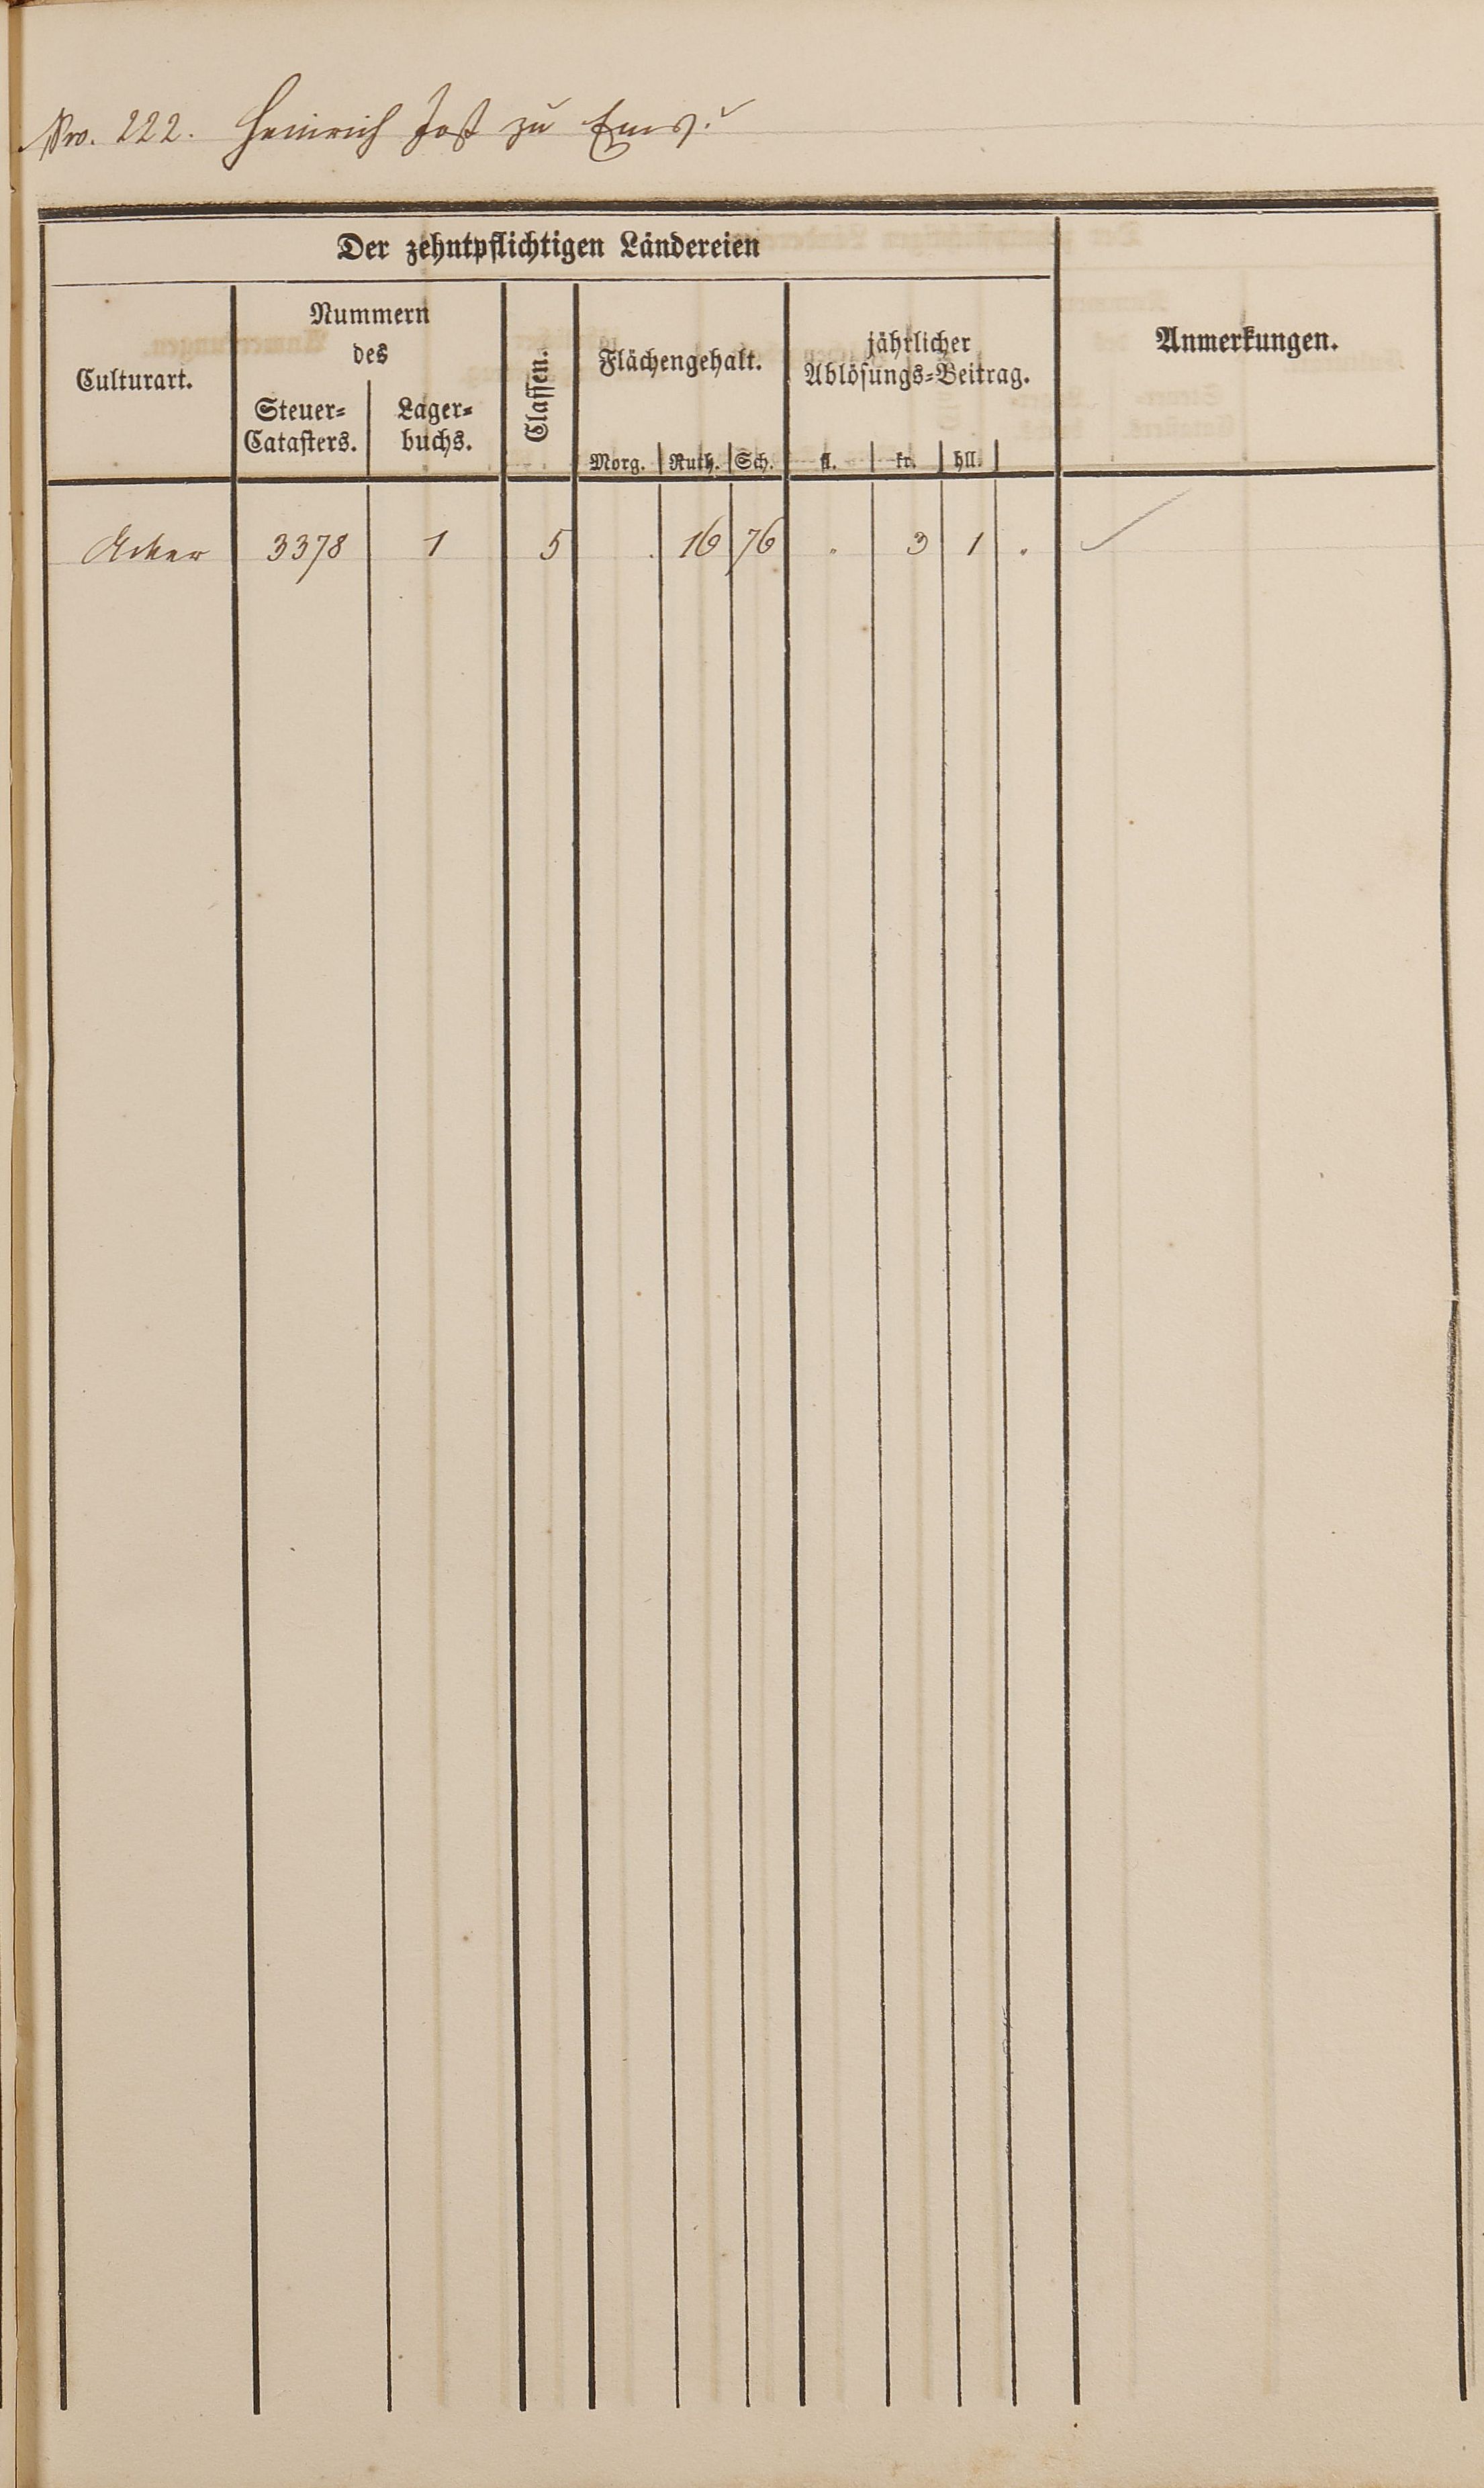 No. 222. Heinrich Jost zu Ems.
Der zehntpflichtigen Ländereien
Culturart.
Nummern
des
Steuer-
Catasters.
Lager-
buchs.
Classen.
Flächengehalt.
Morg. Ruth. Sch.
jährlicher
Ablösungs-Beitrag.
fl. kr. hll.
Anmerkungen.
Acker 3378 1 5 . 16 76 " 3 1 "